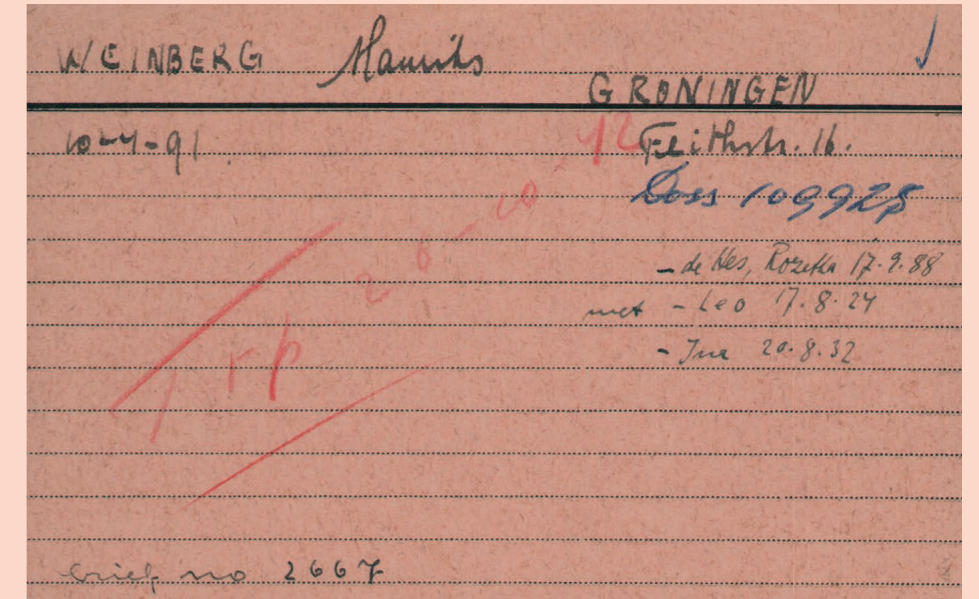 WEINBERG Maurits
GRONINGEN
10-4-91. Feithstr. 16.
Doss 109928
- de Hes, Rozetta 17.9.88
met - Leo 17.8.24
- Ina 20.8.32
26-10-42
brief no 2667